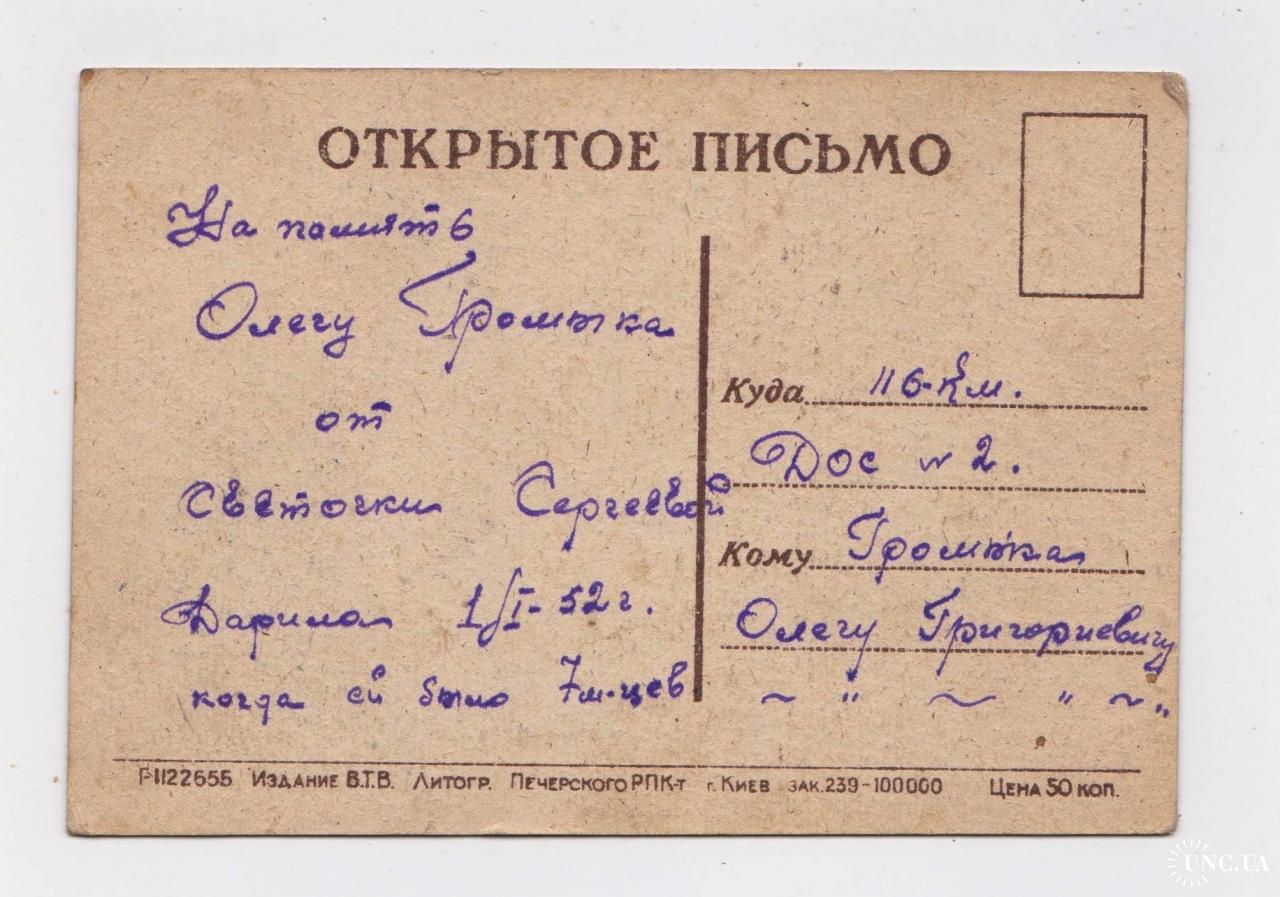 ОТКРЫТОЕ ПИСЬМО
На память
Олегу Громтка
от
Светочки Сергеевой
Дарила 1/I-52 г.
когда ей было 7 м-цев
Куда 116-км.
Дос № 2.
Кому Громтка
Олегу Григориевичу
~ " ~ " ~ "
Г-1122655 ИЗДАНИЕ В.Т.В. ЛИТОГР. ПЕЧЕРСКОГО РПК-т г. КИЕВ ЗАК. 239-100000 ЦЕНА 50 КОП.
UNC.UA